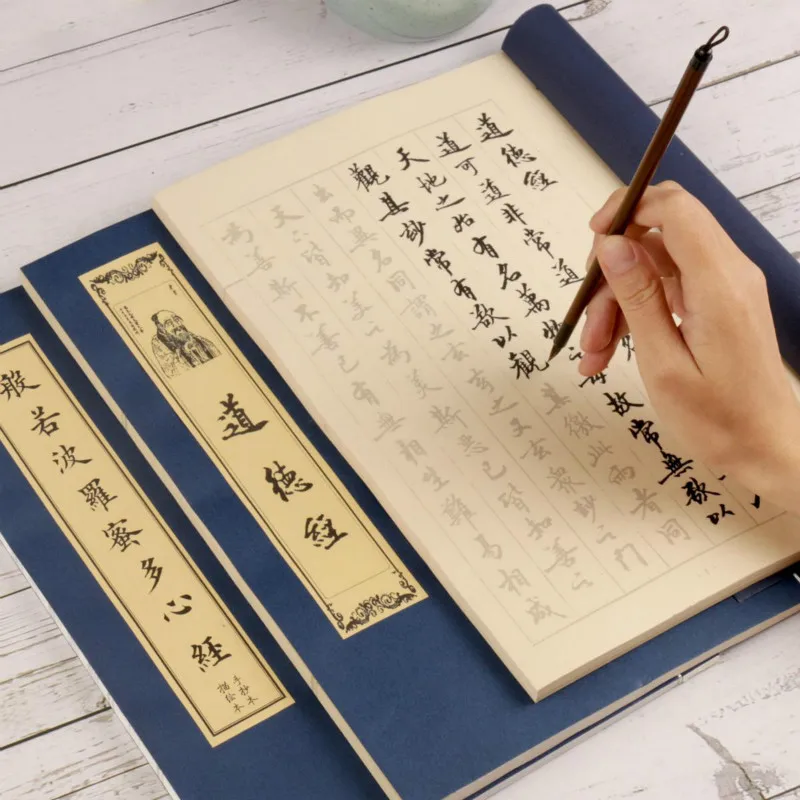 道德經
道可道非常道
天地之始有名萬物之母故常無欲以
觀其妙常有欲以觀其徼此兩者同
出而異名同謂之玄玄之又玄眾妙之門
天下皆知美之為美斯惡已皆知善之
為善斯不善已有無相生難易相成
道德經
般若波羅蜜多心經
手抄本
描绘本